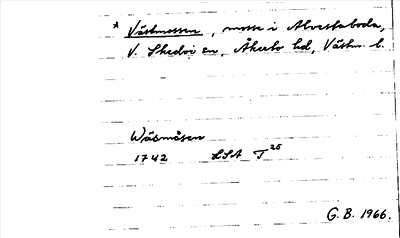 * Västmossen, mosse i Alvestaboda,
V. Skedvi sn, Åkerbo hd, Västm. l.
Wäsmåsen
1742 LSA T 25
G. B. 1966.